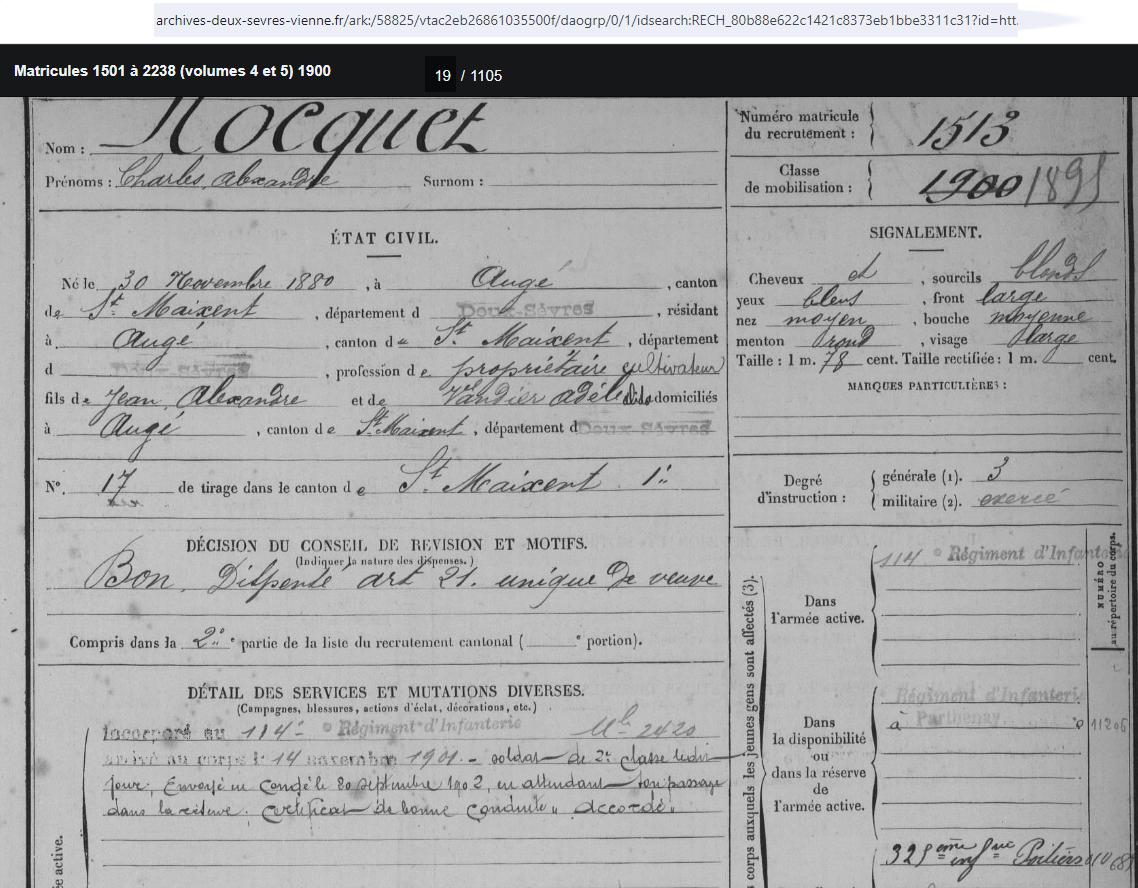 archives-deux-sevres-vienne.fr/ark:/58825/vtac2eb26861035500f/daogrp/0/1/idsearch:RECH_80b88e622c1421c8373eb1bbe3311c31?id=htt
Matricules 1501 à 2238 (volumes 4 et 5) 1900
19 / 1105
Nom : Nocquet
Prénoms : Charles, Alexandre Surnom :
Numéro matricule
du recrutement : 1513
Classe
de mobilisation : 1900
ÉTAT CIVIL.
Né le 30 Novembre 1880, à Augé, canton
de St Maixent, département d Deux-Sèvres, résidant
à Augé, canton de St Maixent, département
d Deux-Sèvres, profession de propriétaire cultivateur
fils de Jean, Alexandre et de Vandier Adèle domiciliés
à Augé, canton de St Maixent, département d Deux-Sèvres
N°. 17 de tirage dans le canton de St Maixent 1er
SIGNALEMENT.
Cheveux et, sourcils blonds
yeux bleus, front large
nez moyen, bouche moyenne
menton rond, visage large
Taille : 1 m. 78 cent. Taille rectifiée : 1 m. cent.
MARQUES PARTICULIÈRES :
Degré
d'instruction :
générale (1). 3
militaire (2). exercé
DÉCISION DU CONSEIL DE REVISION ET MOTIFS.
(Indiquer la nature des dispenses.)
Bon. Dispensé art 21. unique de veuve
Compris dans la 2e partie de la liste du recrutement cantonal ( e portion).
DÉTAIL DES SERVICES ET MUTATIONS DIVERSES.
(Campagnes, blessures, actions d'éclat, décorations, etc.)
Incorporé au 114e Régiment d'Infanterie Mle 2420
arrivé au corps le 14 novembre 1901 - soldat de 2e classe ledit
jour, Envoyé en Congé le 20 septembre 1902, en attendant son passage
dans la réserve. Certificat de bonne conduite "accordé"
corps auxquels les jeunes gens sont affectés (3).
Dans
l'armée active.
114 e Régiment d'Infanterie
NUMÉRO
au répertoire du corps.
Dans
la disponibilité
ou
dans la réserve
de
l'armée active.
Régiment d'Infanterie
à Parthenay
11206
325eme infrie Poitiers
ée active.